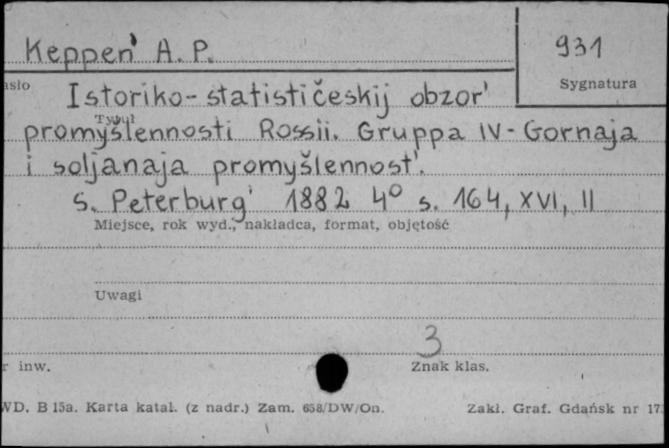 Keppen' A. P.
931
Sygnatura
Istoriko-statističeskij obzor'
Tytuł
promyšlennosti Rossii. Gruppa IV - Gornaja
i soljanaja promyšlennost'.
S. Peterburg' 1882 4° s. 164, XVI, II
Miejsce, rok wyd., nakładca, format, objętość
Uwagi
3
r inw.
Znak klas.
WD. B 15a. Karta katal. (z nadr.) Zam. 658/DW/On.
Zakł. Graf. Gdańsk nr 17